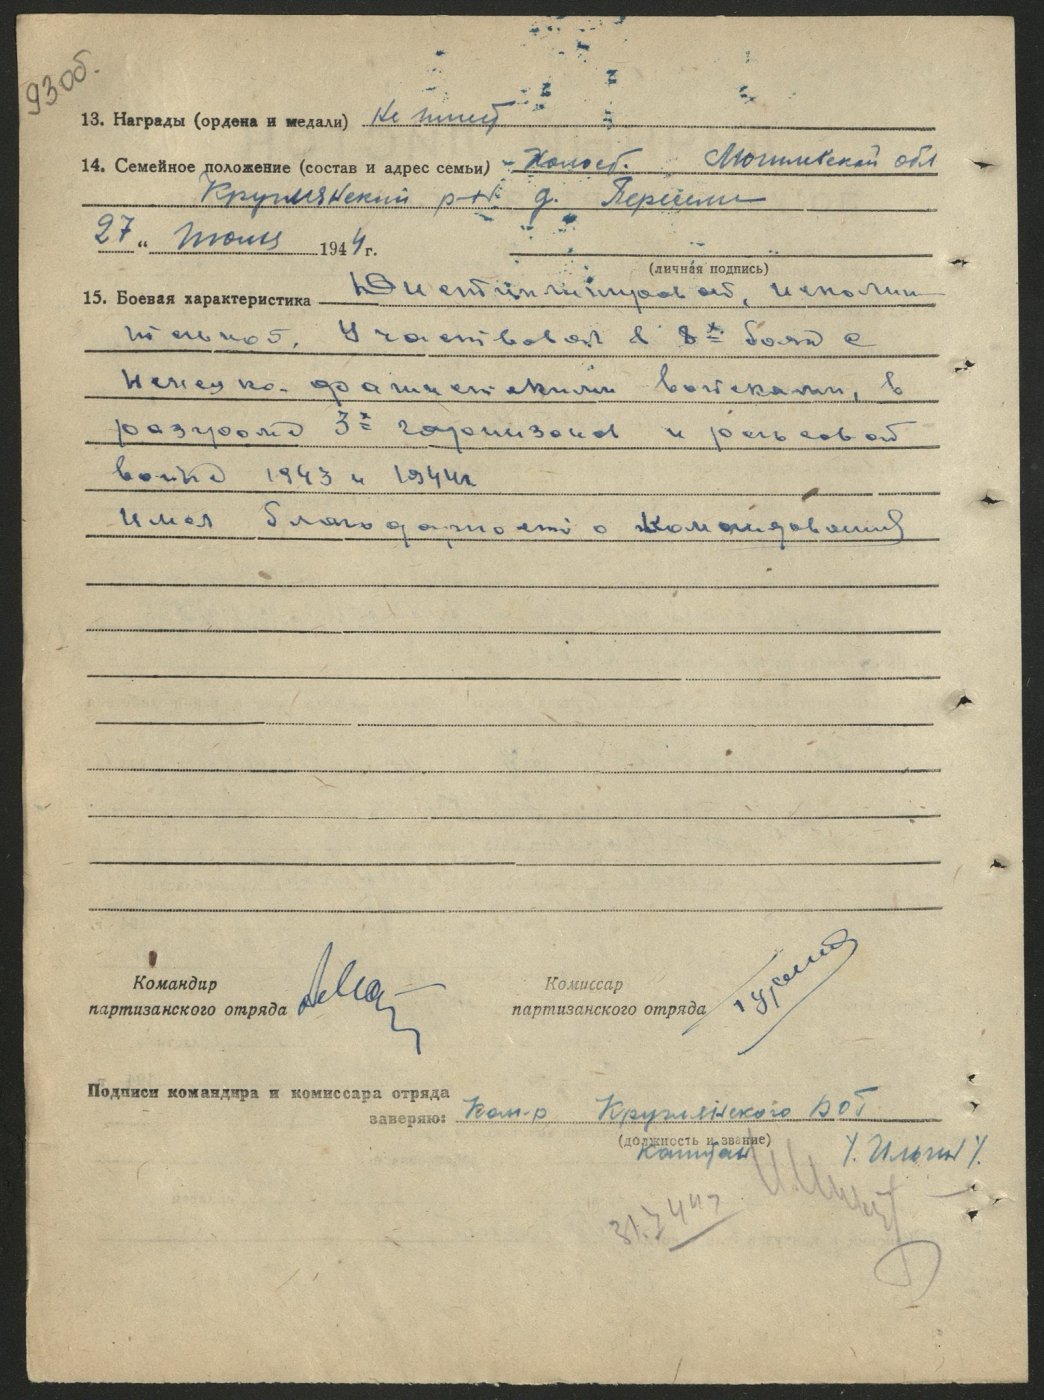 93 об.
13. Награды (ордена и медали) Не имеет
14. Семейное положение (состав и адрес семьи) - Холост. Могилевской обл
Круглянский р-н. д.
27 " июля 1944 г.
(личная подпись)
15. Боевая характеристика Дисциплинирован, исполни
телен. Участвовал в 8х боях с
немецко-фашистскими войсками, в
разгроме 3х гарнизонов и рельсовой
войне 1943 и 1944г
имел благодарности о командования
Командир
партизанского отряда
Комиссар
партизанского отряда
Подписи командира и комиссара отряда
заверяю: Ком-р Круглянского ВОГ
(должность и звание)
капитан /. Ильин /.
31.7 44г